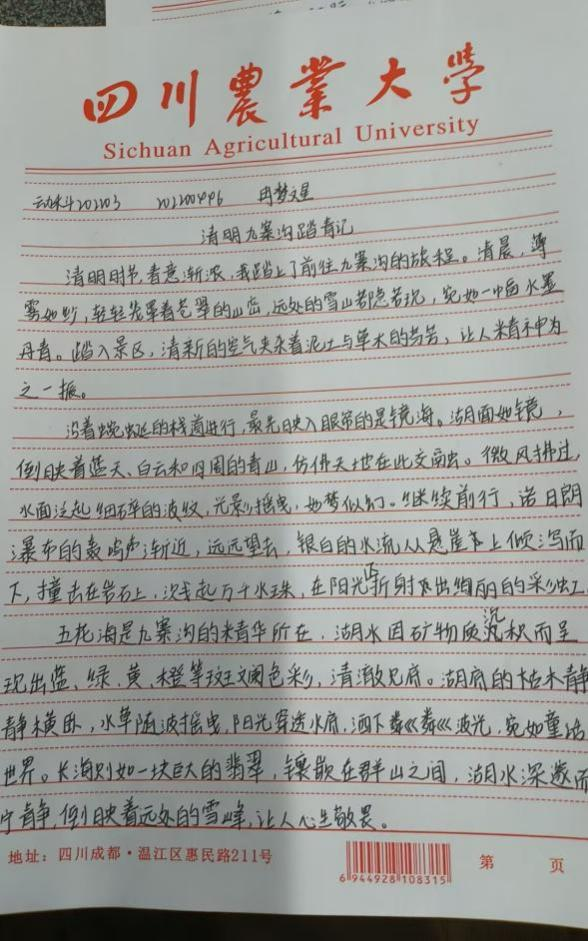 四川農業大学
Sichuan Agricultural University
动科202203 202200496 冉梦星
清明九寨沟踏青记
清明时节,春意渐浓,我踏上了前往九寨沟的旅程。清晨,薄
雾如纱,轻轻笼罩着苍翠的山峦,远处的雪山若隐若现,宛如一幅水墨
丹青。踏入景区,清新的空气夹杂着泥土与草木的芬芳,让人精神为
之一振。
沿着蜿蜒的栈道进行,最先映入眼帘的是镜海。湖面如镜,
倒映着蓝天、白云和四周的青山,仿佛天地在此交融。微风拂过,
水面泛起细碎的波纹,光影摇曳,如梦似幻。继续前行,诺日朗
瀑布的轰鸣声渐近,远远望去,银白的水流从悬崖上倾泻而
下,撞击在岩石上,溅起万千水珠,在阳光下折射出绚丽的彩虹
五花海是九寨沟的精华所在,湖水因矿物质沉积而呈
现出蓝、绿、黄、橙等斑斓色彩,清澈见底。湖底的枯木静
静横卧,水草随波摇曳,阳光穿透水底,洒下粼粼波光,宛如童话
世界。长海则如一块巨大的翡翠,镶嵌在群山之间,湖水深邃而
宁静,倒映着远处的雪峰,让人心生敬畏。
地址:四川成都·温江区惠民路211号
6 944928 108315
第 页